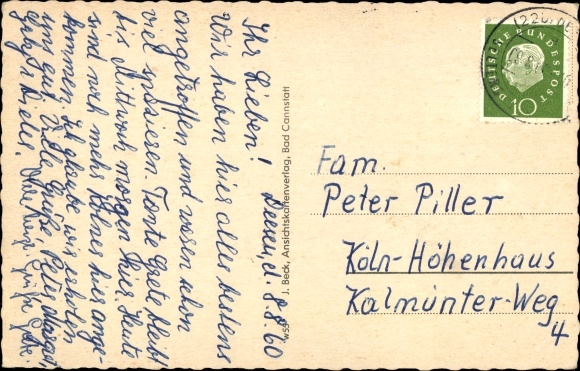 Ihr Lieben! Deesen, d. 8.8.60
Wir haben hier alles bestens
angetroffen und waren schon
viel spazieren. Tante Grete bleibt
bis Mittwoch morgen hier. Heute
sind noch mehr Kölner hier ange-
kommen. Ich glaube wir erholen
uns gut. Viele Grüße Peter, Margot,
Gaby
J. Beck, Ansichtskartenverlag, Bad Cannstatt
W55
DEUTSCHE BUNDESPOST
10
(22b)
Fam.
Peter Piller
Köln-Höhenhaus
Kalmünter-Weg
4